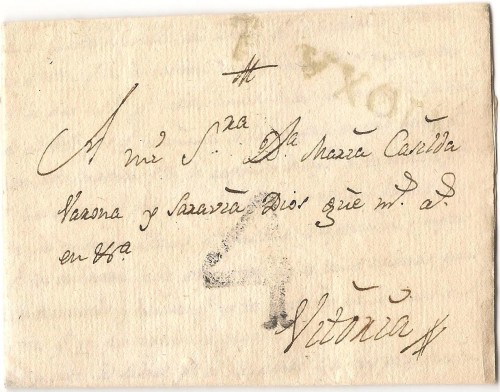 A mi S.ra D.a María Casilda
Varona y Saravia Dios gûe m.s a.s
en
4
Vitoria